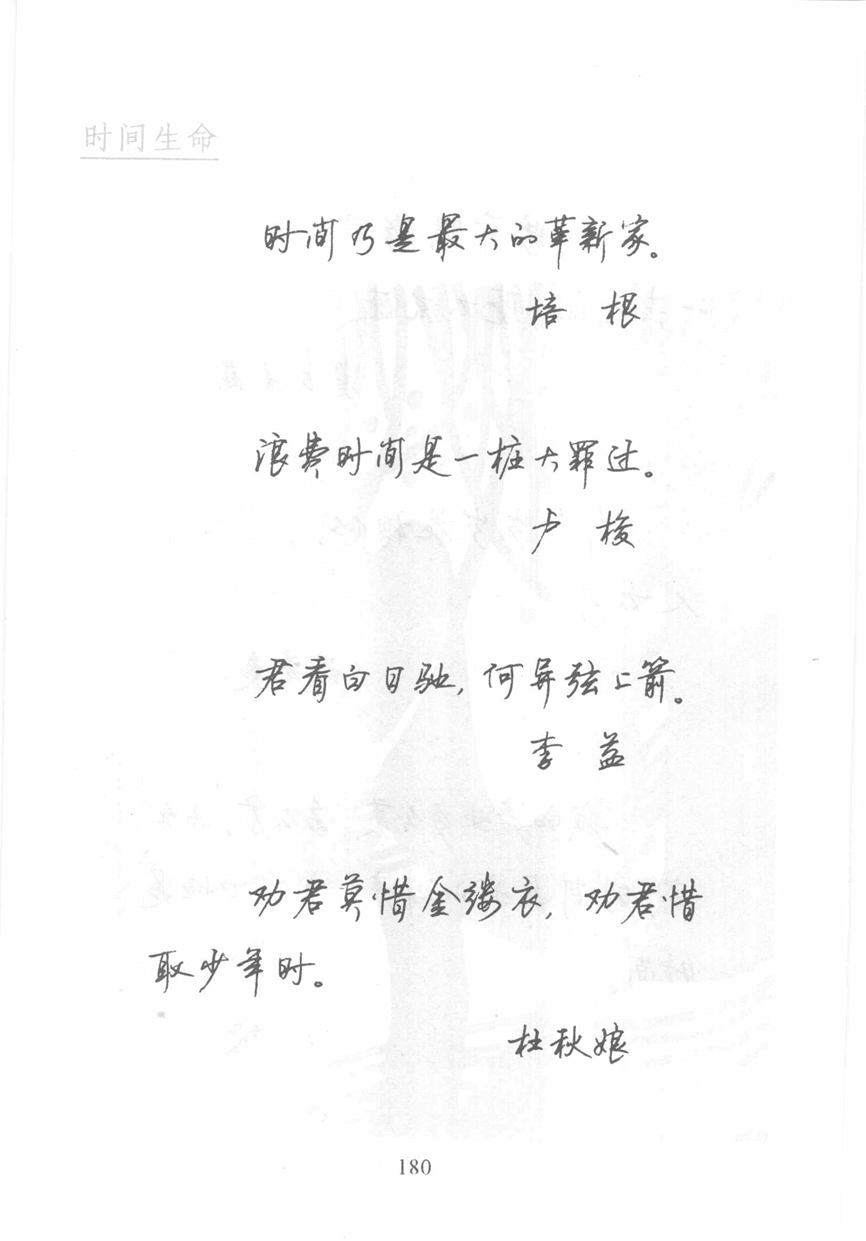 时间生命
时间乃是最大的革新家。
培 根
浪费时间是一桩大罪过。
卢 梭
君看白日驰,何异弦上箭。
李 益
劝君莫惜金缕衣,劝君惜
取少年时。
杜秋娘
180